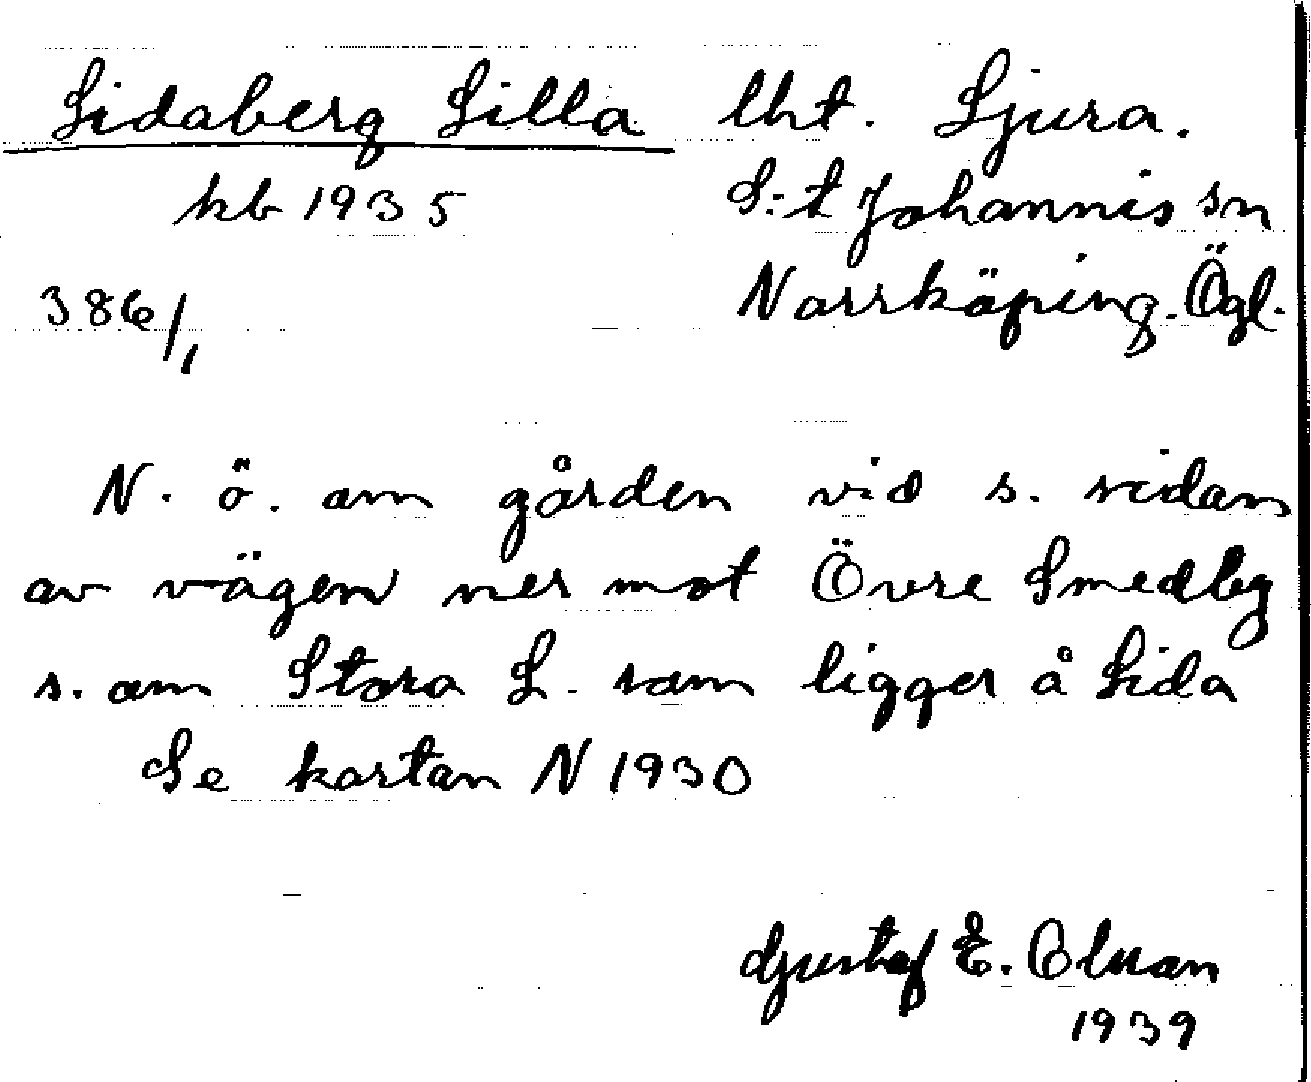 Lidaberg Lilla lht. Ljura.
kb 1935 S:t Johannis sn
386/1 Norrköping. Ögl.
N. ö. om gården vid s. sidan
av vägen ner mot Övre Smedby
s. om Stora L. som ligger å Lida
Se kartan N 1930
Gustaf E. Olsson
1939